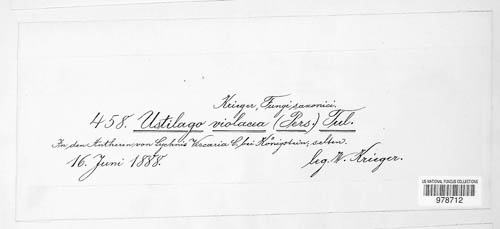 Krieger, Fungi saxonici.
458. Ustilago violacea (Pers.) Tul.
In den Antheren von Lychnis Viscaria L. bei Königstein; selten.
16. Juni 1888. leg. W. Krieger.
US NATIONAL FUNGUS COLLECTIONS
978712